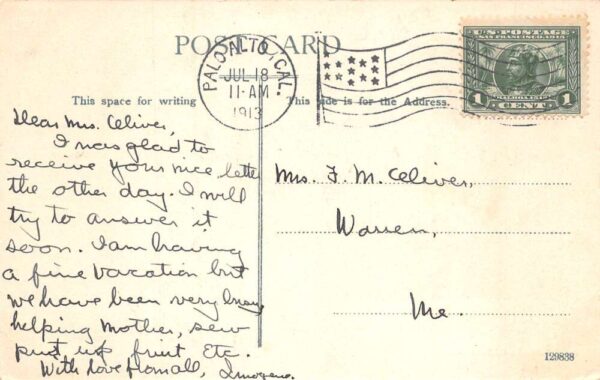 POST CARD
PALO ALTO, CAL.
JUL 18
11-AM
1913
U.S. POSTAGE
SAN FRANCISCO 1915
1 CENT 1
This space for writing
This side is for the Address.
Dear Mrs. Oliver,
I was glad to
receive your nice letter
the other day. I will
try to answer it
soon. I am having
a fine vacation but
we have been very busy
helping Mother, sew
put up fruit Etc.
With love from all, Imogene.
Mrs. F. M. Oliver,
Warren,
Me.
129838